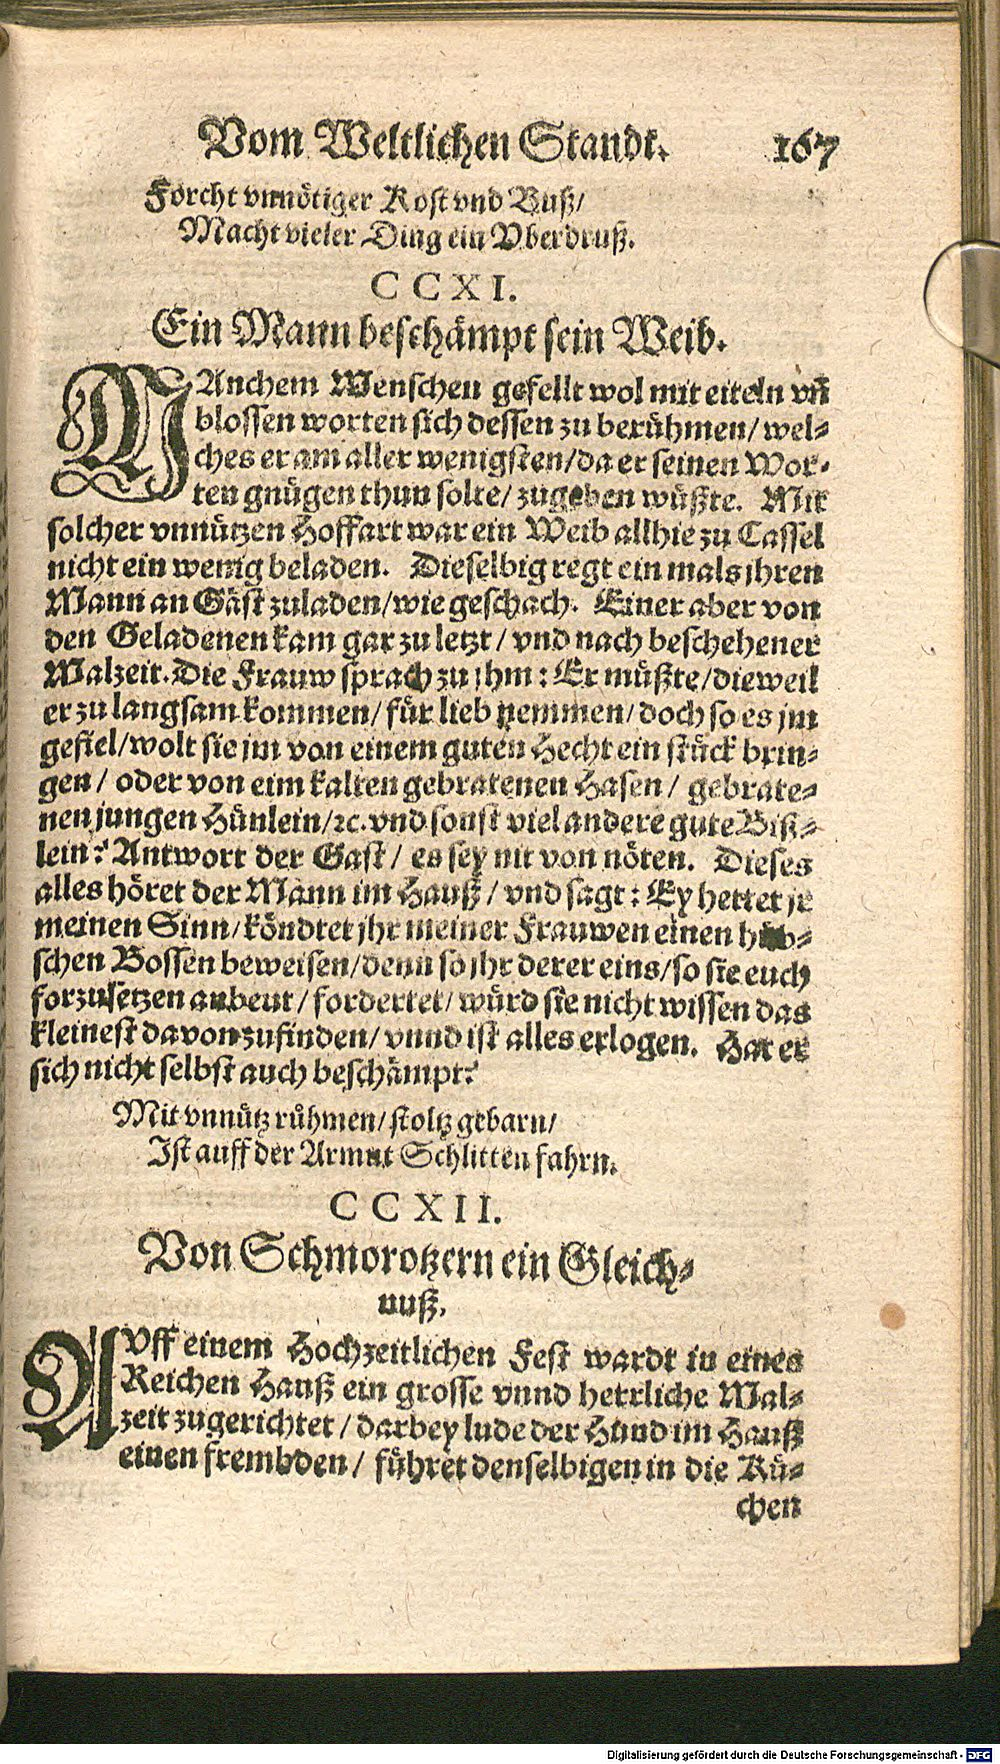 Vom Weltlichen Standt. 167
Forcht vnnötiger Kost vnd Buß/
Macht vieler Ding ein Vberdruß.
CCXI.
Ein Mann beschämpt sein Weib.
MAnchem Menschen gefellt wol mit eiteln vñ
blossen worten sich dessen zu berühmen/ wel-
ches er am aller wenigsten/ da er seinen Wor-
ten gnügen thun solte/ zugeben wüßte. Mit
solcher vnnützen Hoffart war ein Weib allhie zu Cassel
nicht ein wenig beladen. Dieselbig regt ein mals jhren
Mann an Gäst zuladen/ wie geschach. Einer aber von
den Geladenen kam gar zu letzt/ vnd nach beschehener
Malzeit. Die Frauw sprach zu jhm: Er müßte/ dieweil
er zu langsam kommen/ für lieb nemmen/ doch so es jm
gefiel/ wolt sie jm von einem guten Hecht ein stück brin-
gen/ oder von eim kalten gebratenen Hasen/ gebrate-
nen jungen Hünlein/ ꝛc. vnd sonst viel andere gute Biß-
lein? Antwort der Gast/ es sey nit von nöten. Dieses
alles höret der Mann im Hauß/ vnd sagt: Ey hettet jr
meinen Sinn/ köndtet jhr meiner Frauwen einen hüb-
schen Bossen beweisen/ denn so jhr derer eins/ so sie euch
forzusetzen anbeut/ fordertet/ würd sie nicht wissen das
kleinest davon zufinden/ vnnd ist alles erlogen. Hat er
sich nicht selbst auch beschämpt?
Mit vnnütz rühmen/ stoltz gebarn/
Ist auff der Armut Schlitten fahrn.
CCXII.
Von Schmorotzern ein Gleich-
nuß.
AVff einem Hochzeitlichen Fest wardt in eines
Reichen Hauß ein grosse vnnd herrliche Mal-
zeit zugerichtet/ darbey lude der Hund im Hauß
einen frembden/ führet denselbigen in die Kü-
chen
Digitalisierung gefördert durch die Deutsche Forschungsgemeinschaft - DFG